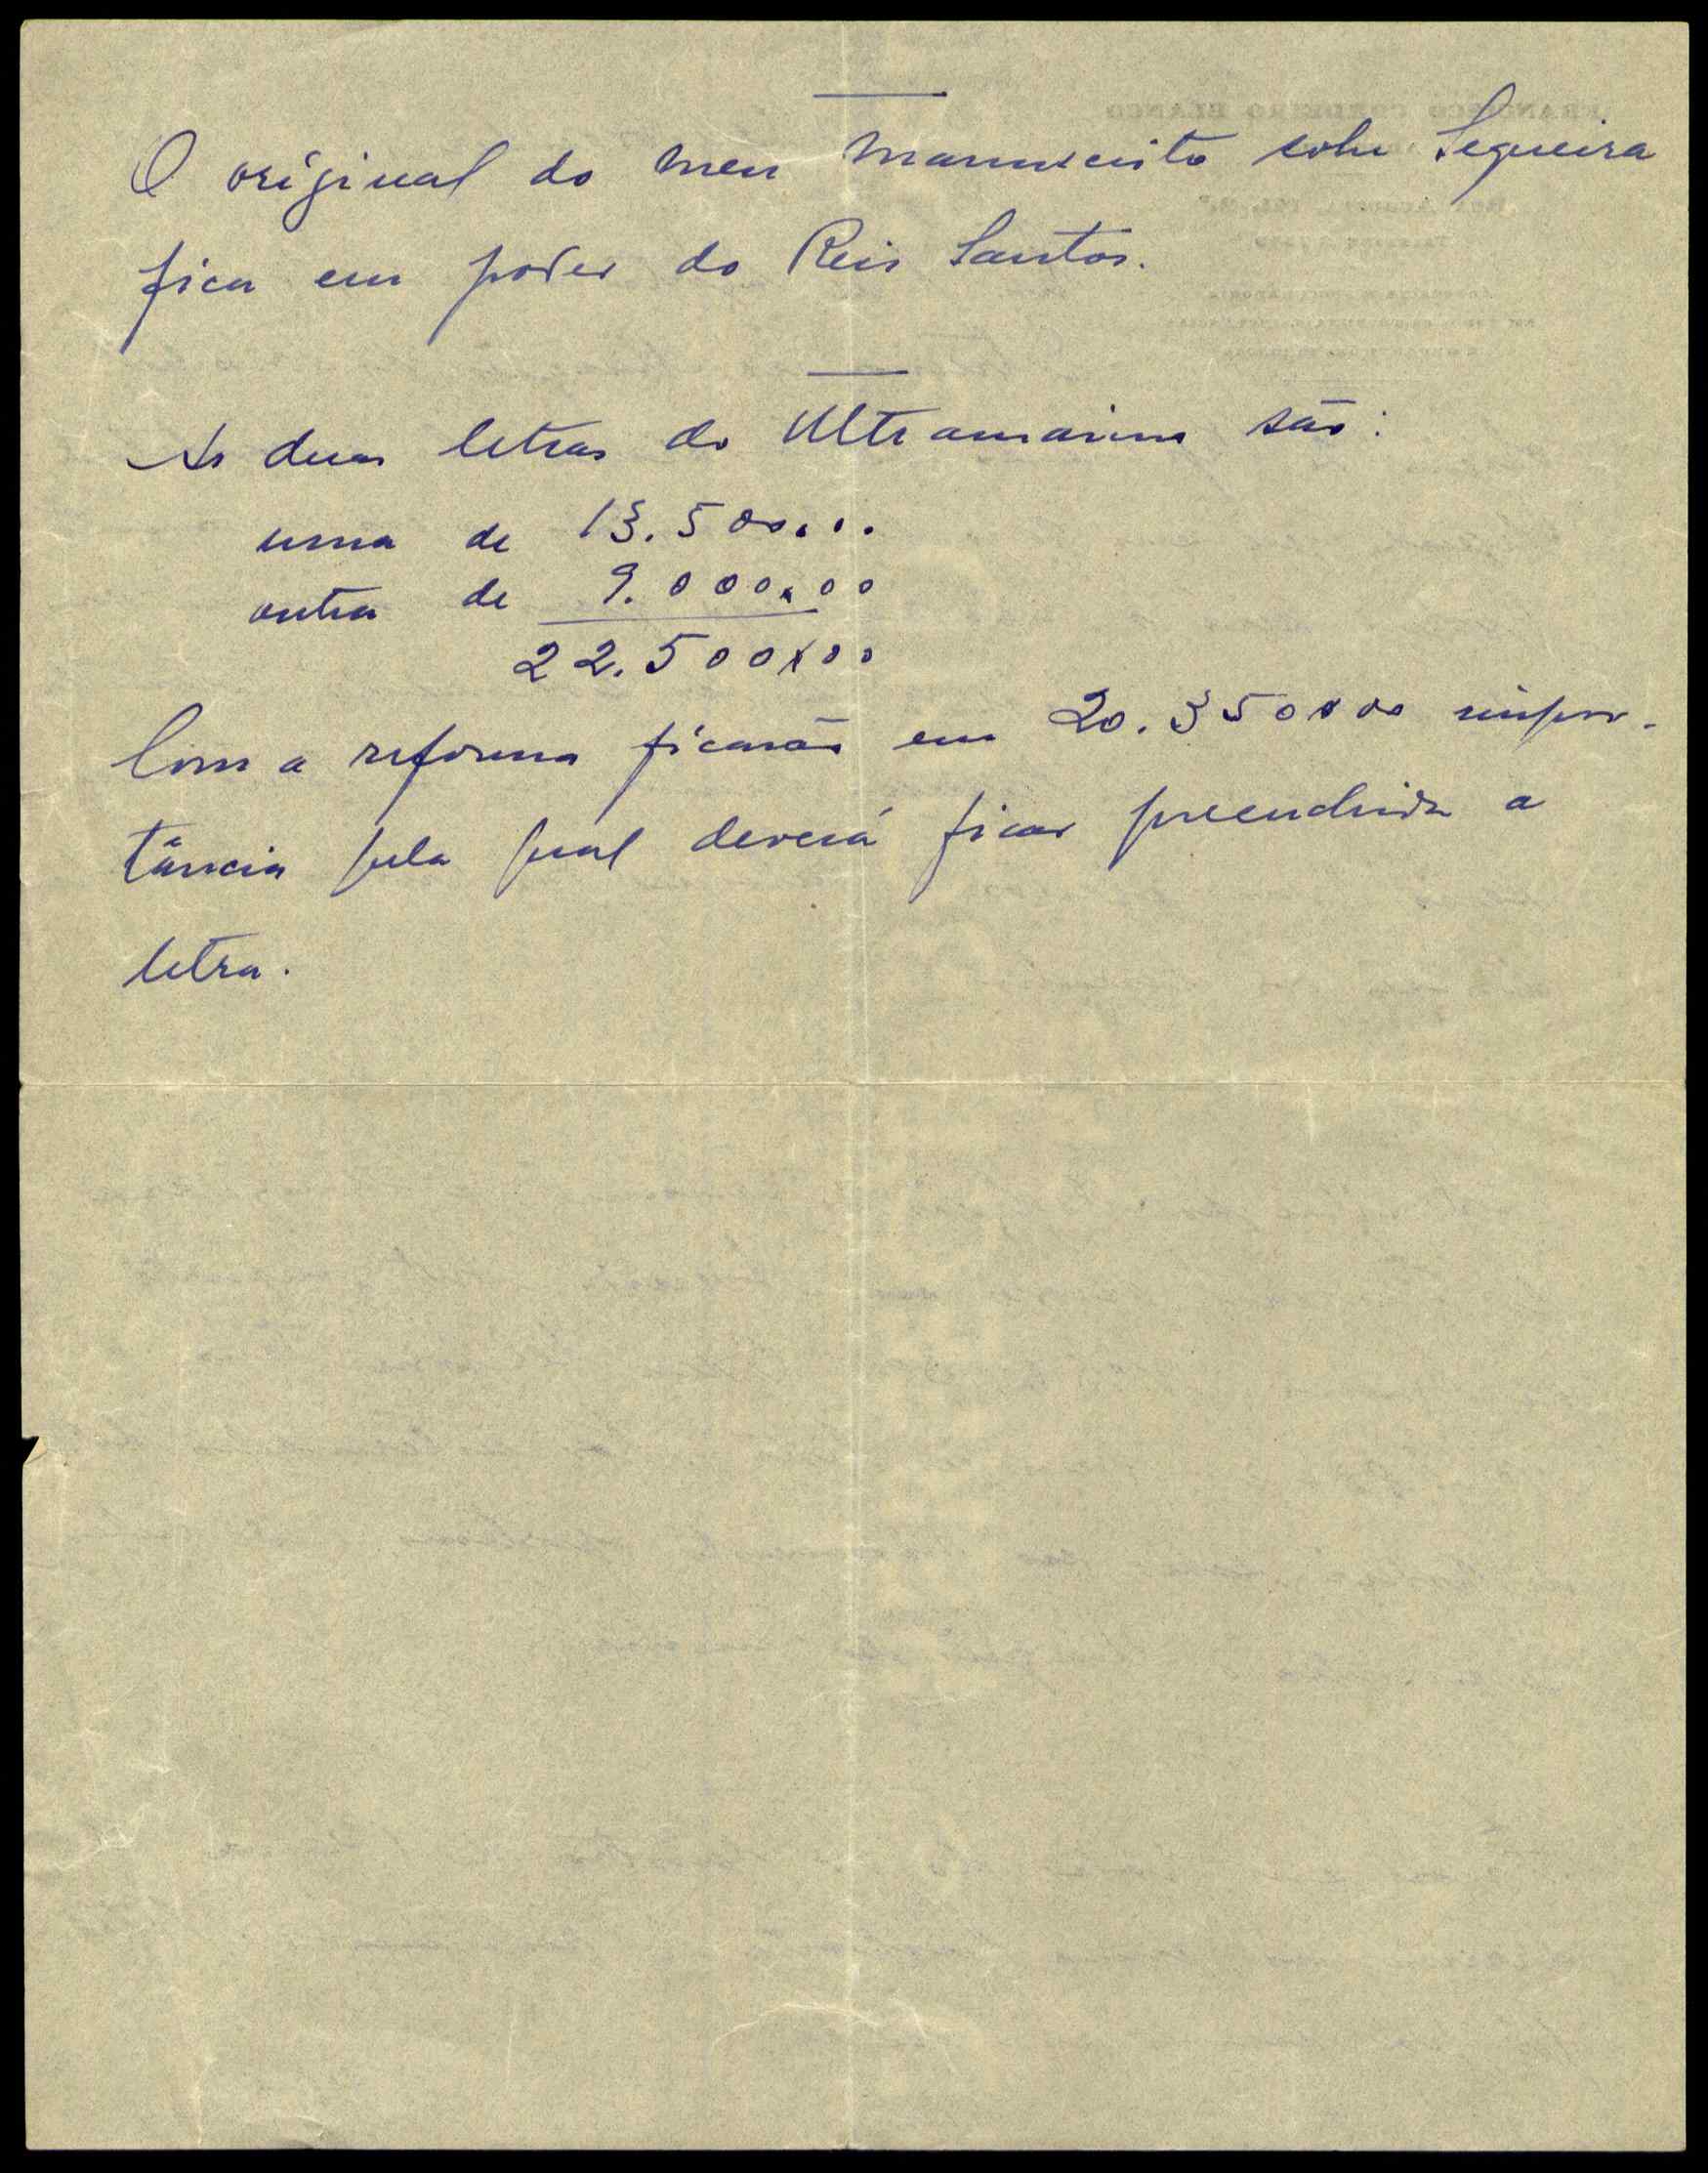 O original do meu manuscrito sobre Sequeira
fica em poder do Reis Santos.
As duas letras do Ultramarino são:
uma de 13.500x..
outra de 9.000x00
22.500x00
Com a reforma ficarão em 20.350x00 impor-
tância pela qual deverá ficar preenchida a
letra.